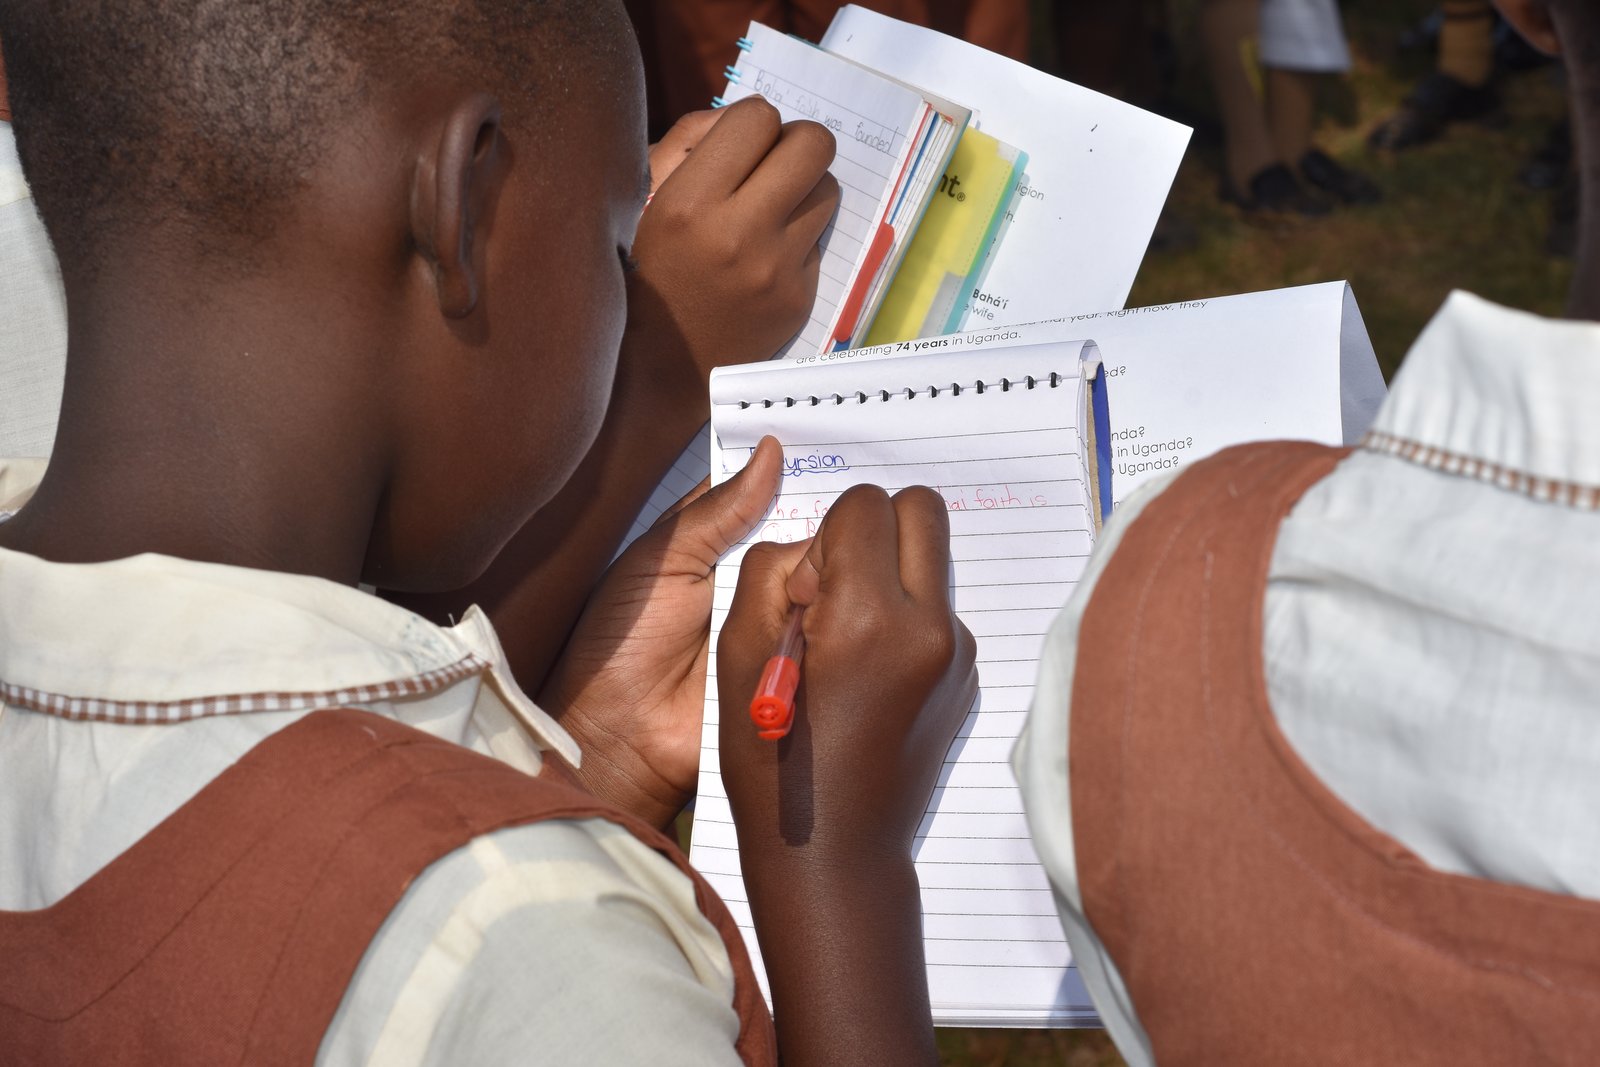 Baha' faith was founded
nt®
igion
h.
?
Bahá'í
wife
that year. Right now, they
are celebrating 74 years in Uganda.
ed?
nda?
in Uganda?
Uganda?
ursion
he fo hai faith is